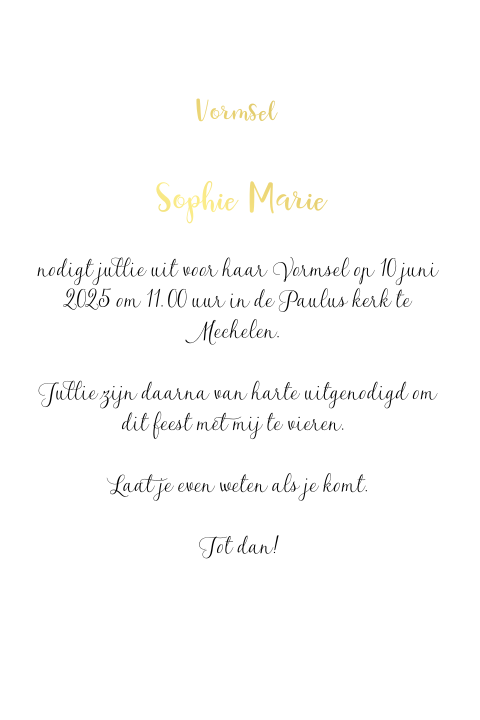 Vormsel
Sophie Marie
nodigt jullie uit voor haar Vormsel op 10 juni
2025 om 11.00 uur in de Paulus kerk te
Mechelen.
Jullie zijn daarna van harte uitgenodigd om
dit feest met mij te vieren.
Laat je even weten als je komt.
Tot dan!